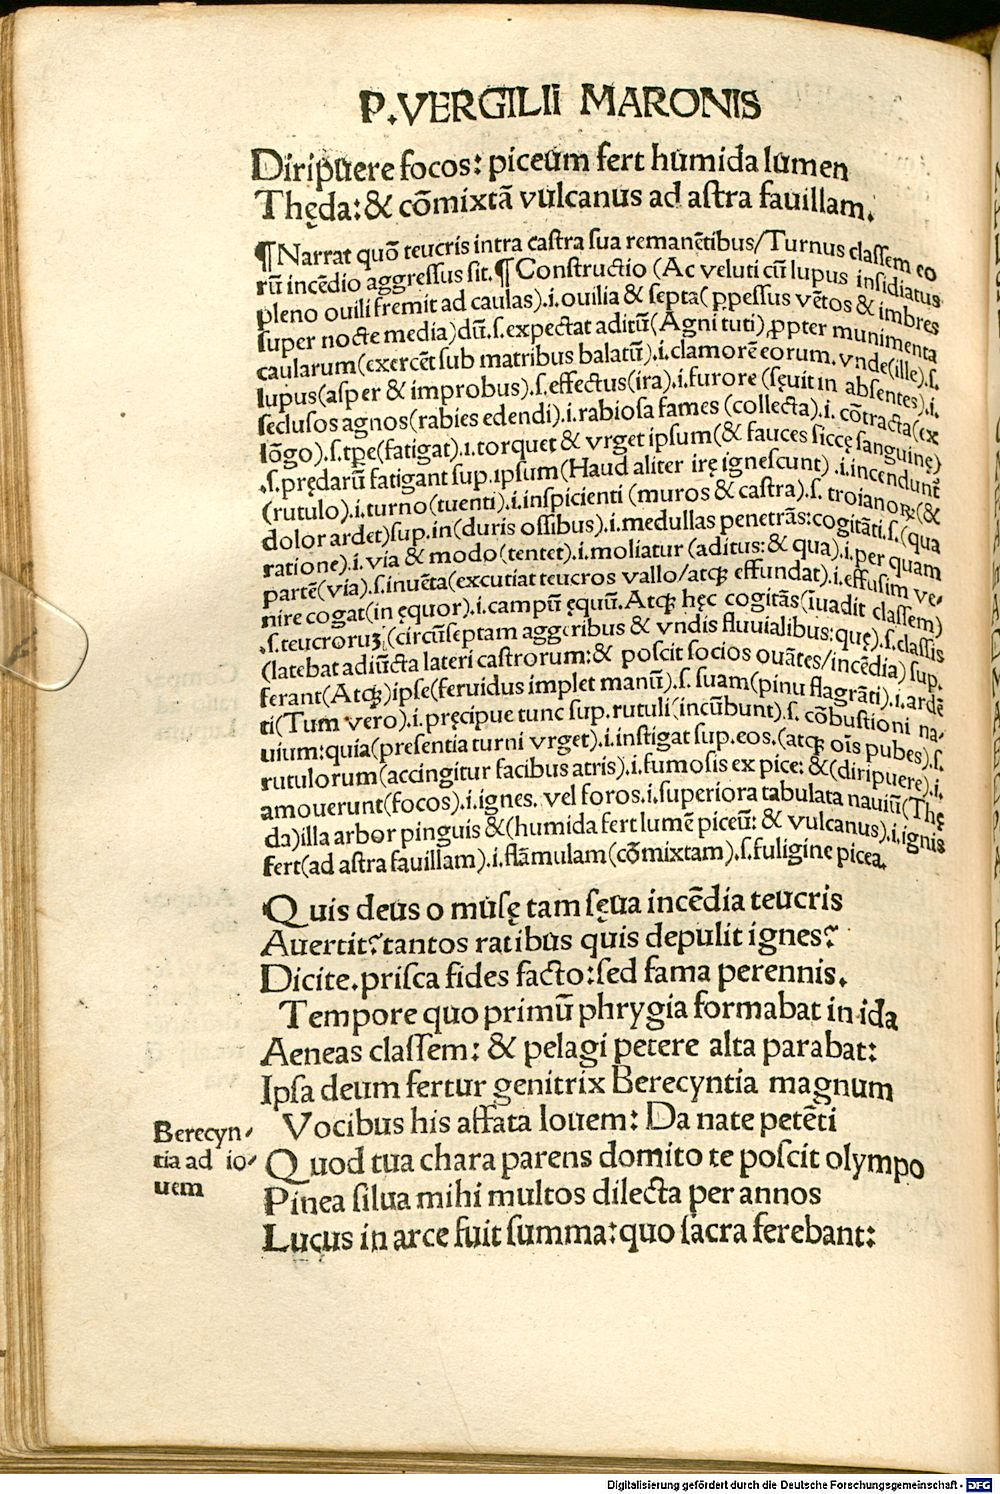 P.VERGILII MARONIS
Diripuere focos: piceum fert humida lumen
Thęda: & cōmixtā vulcanus ad astra fauillam.
¶Narrat quō teucris intra castra sua remanētibus/Turnus classem eo
rū incēdio aggressus sit.¶Constructio (Ac veluti cū lupus insidiatus
pleno ouili fremit ad caulas).i.ouilia & septa( ꝑpessus vētos & imbres
super nocte media)dū.s.expectat aditū(Agni tuti),ꝓpter munimenta
caularum(exercēt sub matribus balatū).i.clamorē eorum. vnde(ille).s.
lupus(asper & improbus).s.effectus(ira).i.furore (sęuit in absentes).i.
seclusos agnos(rabies edendi).i.rabiosa fames (collecta).i. cōtracta(ex
lōgo).s.tꝑe(fatigat).i.torquet & vrget ipsum(& fauces siccę sanguinę)
.s.prędarū fatigant sup.ipsum(Haud aliter irę ignescunt) .i.incendunt᷑
(rutulo).i.turno(tuenti).i.inspicienti (muros & castra).s. troianoꝝ:(&
dolor ardet)sup.in(duris ossibus).i.medullas penetrās:cogitāti.s.(qua
ratione).i.via & modo(tentet).i.moliatur (aditus:& qua).i.per quam
partē(via).s.inuēta(excutiat teucros vallo/atqꝫ effundat).i.effusim ve⸗
nire cogat(in ęquor).i.campū ęquū.Atqꝫ hęc cogitās(īuadit classem)
.s.teucroruꝫ(circūseptam aggeribus & vndis fluuialibus:quę).s.classis
(latebat adiūcta lateri castrorum:& poscit socios ouātes/incēdia) sup.
ferant(Atqꝫ)ipse(feruidus implet manū).s. suam(pinu flagrāti).i.ardē
ti(Tum vero).i.pręcipue tunc sup.rutuli(incūbunt).s. cōbustioni na⸗
uium:quia(presentia turni vrget).i.instigat sup.eos.(atqꝫ oīs pubes).s.
rutulorum(accingitur facibus atris).i.fumosis ex pice: &(diripuere).i.
amouerunt(focos).i.ignes. vel foros.i.superiora tabulata nauiū(Thę
da)illa arbor pinguis &(humida fert lumē piceū: & vulcanus).i.ignis
fert(ad astra fauillam).i.flāmulam(cōmixtam).s.fuligine picea.
Quis deus o musę tam sęua incēdia teucris
Auertit?tantos ratibus quis depulit ignes?
Dicite.prisca fides facto:sed fama perennis.
Tempore quo primū phrygia formabat in ida
Aeneas classem: & pelagi petere alta parabat:
Ipsa deum fertur genitrix Berecyntia magnum
Vocibus his affata Iouem: Da nate petēti
Berecyn⸗
tia ad io⸗
uem
Quod tua chara parens domito te poscit olympo
Pinea silua mihi multos dilecta per annos
Lucus in arce fuit summa:quo sacra ferebant:
Digitalisierung gefördert durch die Deutsche Forschungsgemeinschaft - DFG